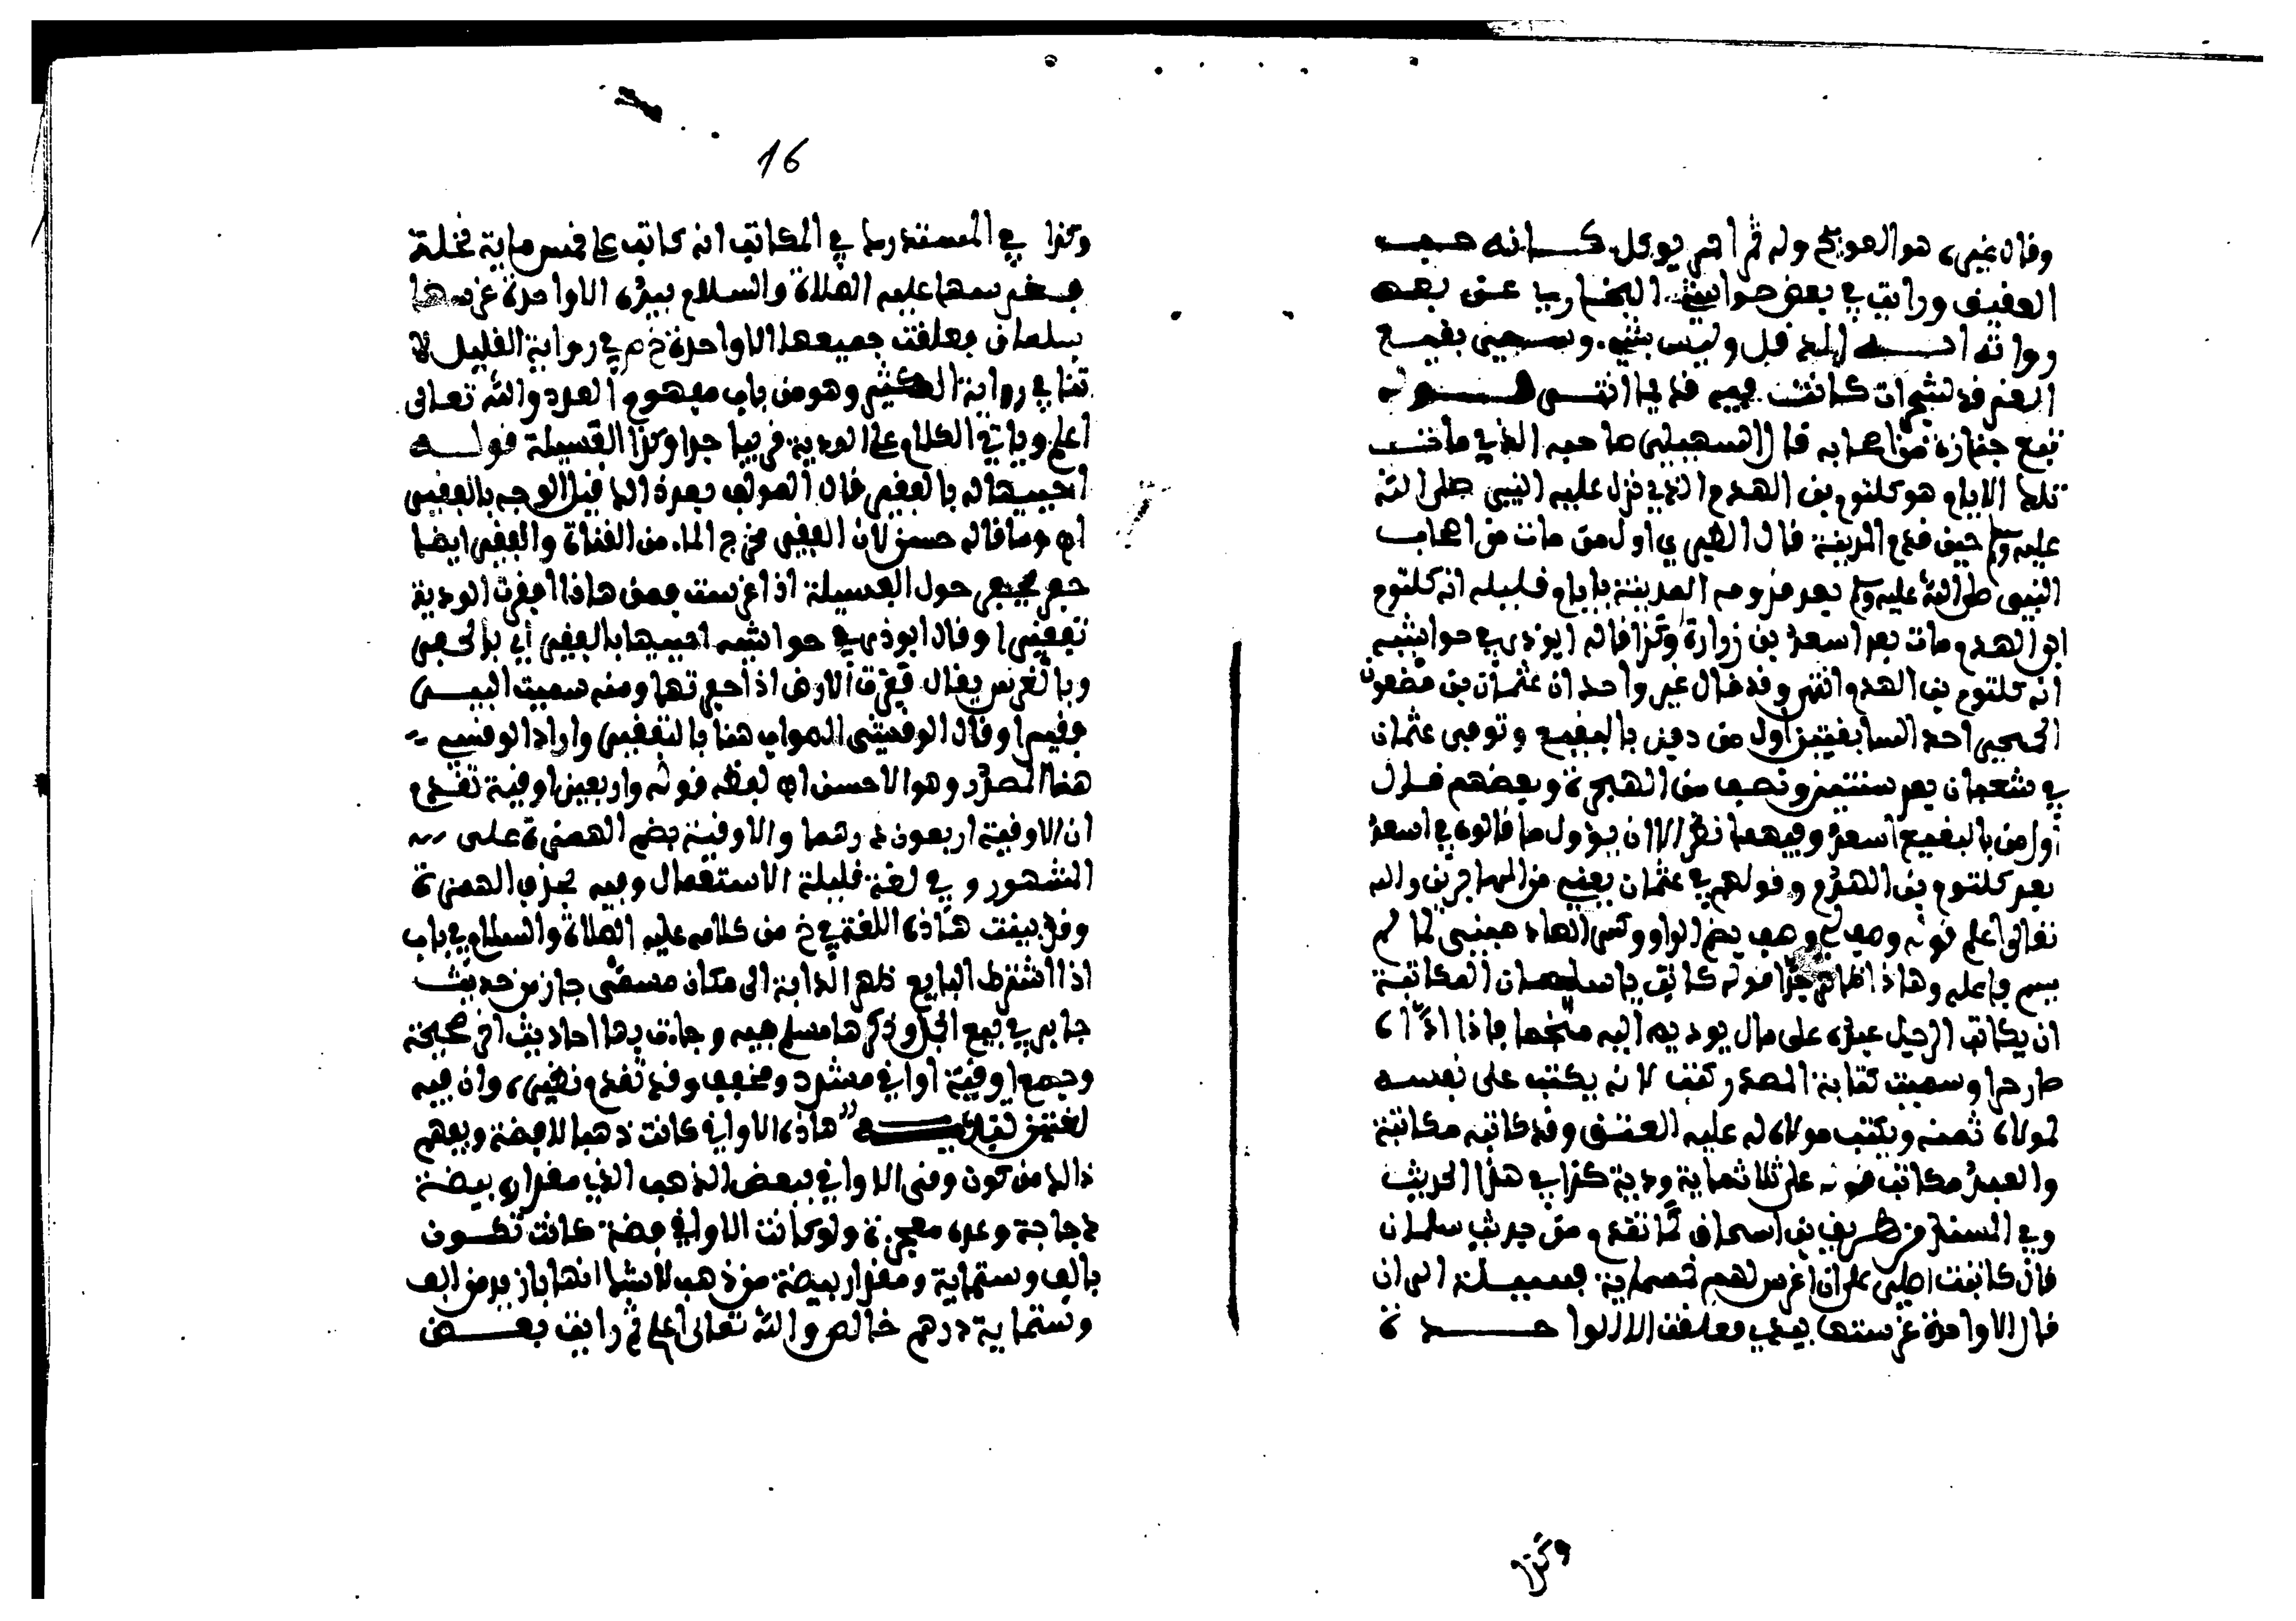 وقال غيره هو العوسج وله ثمر احمر يوكل كانه حب
العقيق ورايت في بعض حواشي البخاري عن بعض
رواته انه الدقل وليس بشي وسيجي بقيع
الغرقد لشجرات كانت فيه قديما انتهى قوله
تبع جنازة من اصحابه قال السهيلي صاحبه الذي مات
تلك الايام هو كلثوم بن الهدم الذي نزل عليه النبي صلى الله
عليه وسلم حين قدم المدينة قال الطبري اول من مات من اصحاب
النبي صلى الله عليه وسلم بعد قدومه المدينة بايام قليله انه كلثوم
ابن الهدم ومات بعده اسعد بن زرارة وكذا قاله ابوذر في حواشيه
انه كلثوم بن الهدم انتهى وقد قال غير واحد ان عثمان بن مضعون
الجمحي احد السابقين اول من دفن بالبقيع وتوفي عثمان
في شعبان بعد سنتين ونصف من الهجرة وبعضهم قال
اول من بالبقيع اسعد وفيهما نظر الا ان يؤول ما قالوه في اسعد
بعد كلثوم بن الهدم وقولهم في عثمان يعني من المهاجرين والله
تعالى اعلم قوله وصف لي وصف بضم الواو وكسر الصاد مبني لما لم
يسم فاعله وهاذا ظاهر جدا قوله كاتب ياسلمان المكاتبة
ان يكاتب الرجل عبده على مال يوديه اليه منجما فاذا اداه
صار حرا وسميت كتابة المصدر كتب لانه يكتب على نفسه
لمولاه ثمنه ويكتب مولاه له عليه العتق وقد كاتبه مكاتبة
والعبد مكاتب قوله على ثلاثماية ودية كذا في هذا الحديث
وفي المسند من طريف بن اسحاق كما تقدم من حديث سلمان
قال كاتبت اهلي على ان اغرس لهم خمسماية فسيلة الى ان
قال الا واحدة غرستها بيدي فعلقن الا الواحدة
وكذا
16
وكذا في المستدرك في المكاتب انه كاتب على خمس ماية نخلة
فغرسها عليه الصلاة والسلام بيده الا واحدة غرسها
سلمان فعلقت جميعها الا واحدة خ م في رواية القليل لا
تنافي رواية الكثير وهو من باب مفهوم العدد والله تعالى
اعلم وياتي الكلام على الودية قريبا جدا وكذا الفسيلة قوله
احييها له بالفقير قال المولف بعد هذا قيل الوجه بالتفقير
اه وما قاله حسن لان الفقير مخرج الماء من القناة والفقير ايضا
حفر يحفر حول الفسيلة اذا غرست فمن هاذا افقرت الودية
تفقيرا وقال ابوذر في حواشيه احييها بالفقير أي بالحفر
وبالغرس يقال فقرت الارض اذا حفرتها ومنه سميت البير
فقيرا وقال الوقشي الصواب هنا بالتفقير واراد الوقشي
هنا المصدر وهو الاحسن اه لفظه قوله واربعين اوقية تقدم
ان الاوقية اربعون درهما والاوقية بضم الهمزة على
المشهور وفي لغة قليلة الاستعمال وقيه بحذف الهمزة
وقد بينت هاذه اللغة في خ من كلامه عليه الصلاة والسلام في باب
اذا اشترط البايع ظهر الدابة الى مكان مسمى جاز من حديث
جابر في بيع الجمل وذكرها مسلم فيه وجاءت بها احاديث اخر صحيحة
وجمع اوقية اواقي مشدد ومخفف وقد تقدم نظيره وان فيه
لغتين هاذه الاواقي كانت ذهبا لا فضة ويفهم
ذالك من كون وفى الاواقي ببعض الذهب الذي مقداره بيضة
دجاجة وعده معجزة ولو كانت الاواقي فضة كانت تكون
بالف وستماية ومقدار بيضة من ذهب لاشك انها بازيد من الف
وستماية درهم خالص والله تعالى اعلم ثم رايت بعض